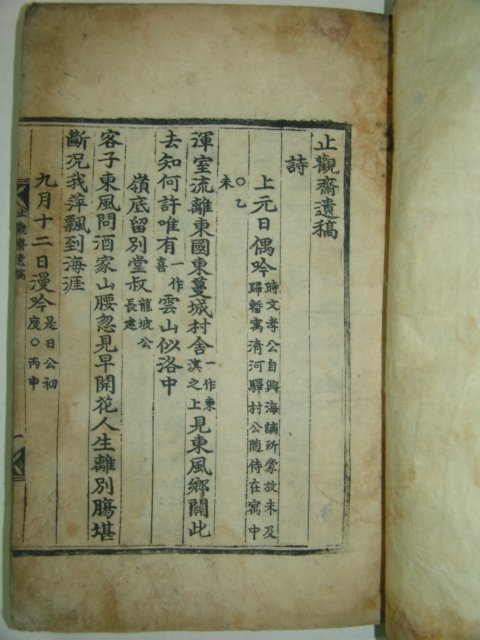 止觀齋遺稿
詩
上元日偶吟 時文孝公自興海謫所蒙放未及歸暫寓淸河驛村公隨侍在寓中○乙未
渾室流離東國東蔓城村舍 一作東濱之上 見東風鄕關此
去知何許唯有 一作喜 雲山似洛中
嶺底留別堂叔 龍坡公長建
客子東風問酒家山腰忽見早開花人生離別腸堪
斷況我萍飄到海涯
九月十二日漫吟 是日公初度○丙申
止觀齋遺稿
一